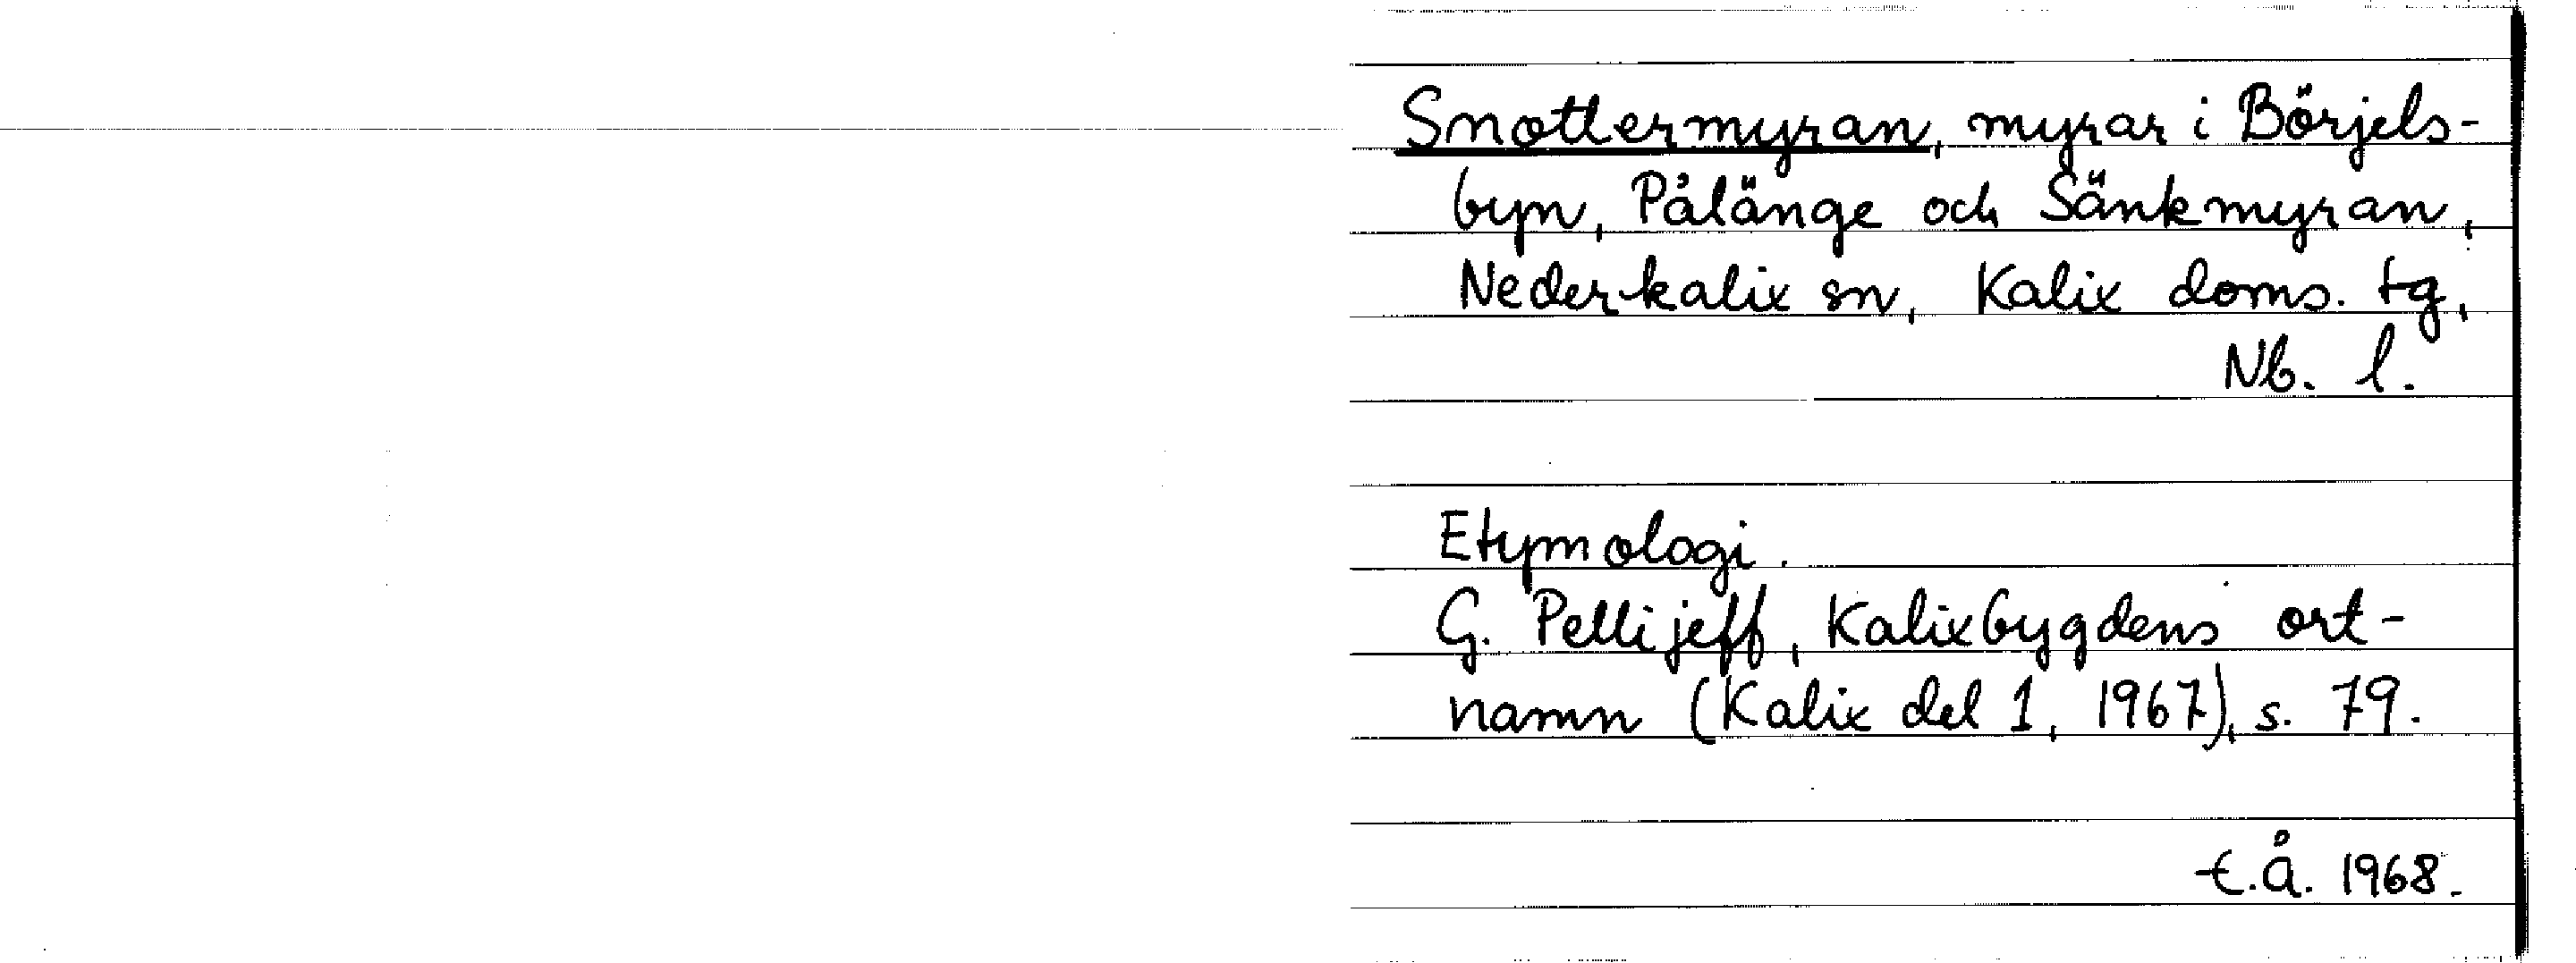 Snottermyran, myrar i Börjels-
byn, Pålänge och Sänkmyran,
Nederkalix sn, Kalix doms. tg,
Nb. l.
Etymologi.
G. Pellijeff, Kalixbygdens ort-
namn (Kalix del 1, 1967), s. 79.
t.å. 1968.